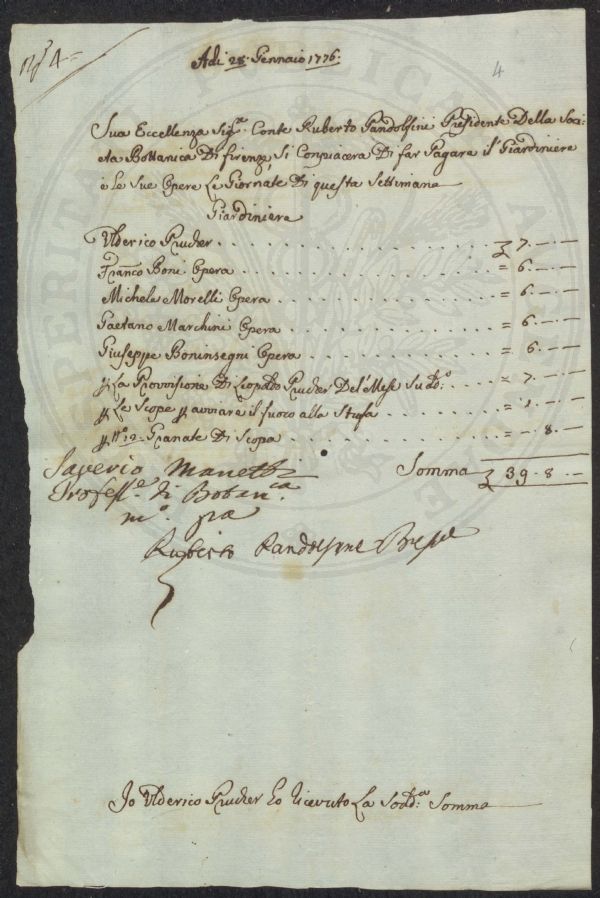 N.º 4=
Adi 28. Gennaio 1776:
4
Sua Eccellenza Sig.re Conte Ruberto Pandolfini Presidente Della Soci=
età Bottanica Di firenze Si Conpiacera Di far Pagare il Giardiniere
e Le Sue Opere Le Giornate Di questa Settimana
Giardiniere
Ulderico Prucher . . . . . . . . £ 7. — . —
Fran.co Boni Opera . . . . . . . . = 6. — . —
Michele Morelli Opera . . . . . . . . = 6. — . —
Gaetano Marchini Opera . . . . . . . . = 6. — . —
Giuseppe Boninsegni Opera . . . . . . . . = 6. — . —
p La Provvisione Di Leopoldo Prucher Del Mese Sud.o . . . . = 7. — . —
p Le Scope p avviare il fuoco alla Stufa . . . . = 1. — . —
p N.o 12 Granate Di Scopa . . . . . . . . — 8. —
Somma £ 39. 8. —
Saverio Manetti
Profess.e di Botan.ca
m.o p.a
Ruberto Pandolfini Presid.e
Jo Ulderico Prucher ho ricevuto La Sodd.a Somma